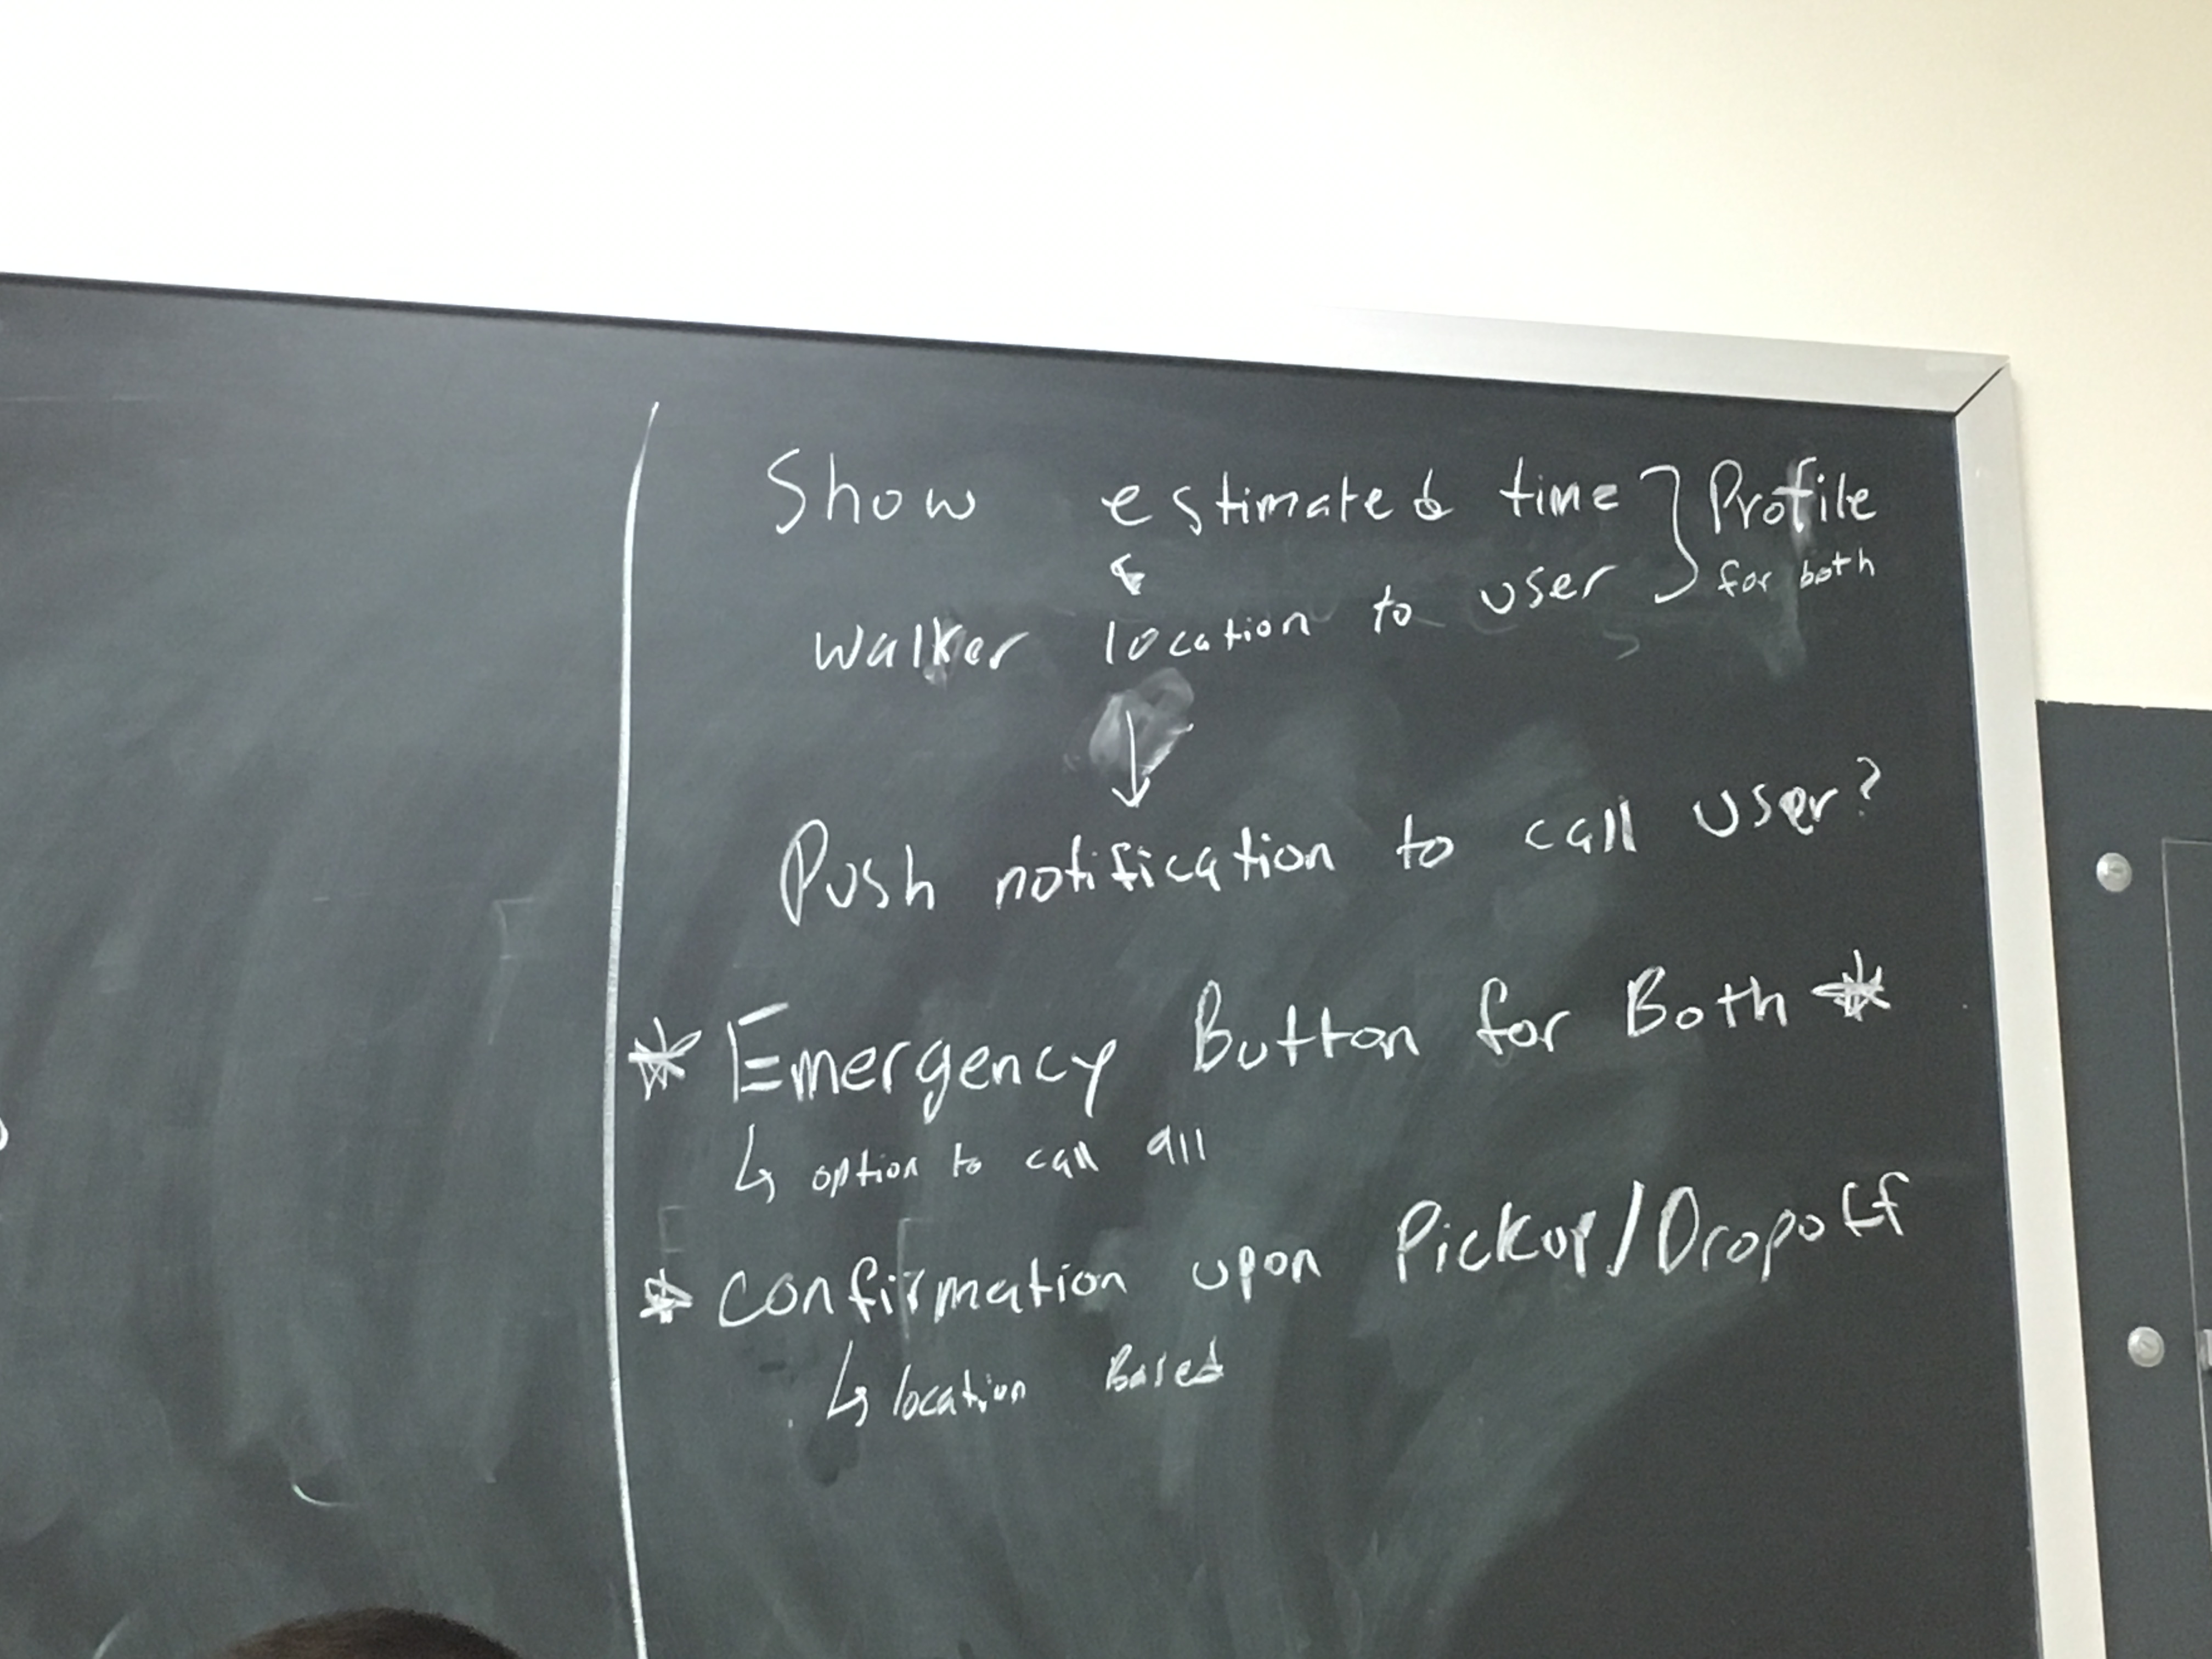 Show estimated time } Profile
& for both
walker location to user
↓
Push notification to call user?
* Emergency Button for Both *
↳ option to call 911
* Confirmation upon Pickup/Dropoff
↳ location Based